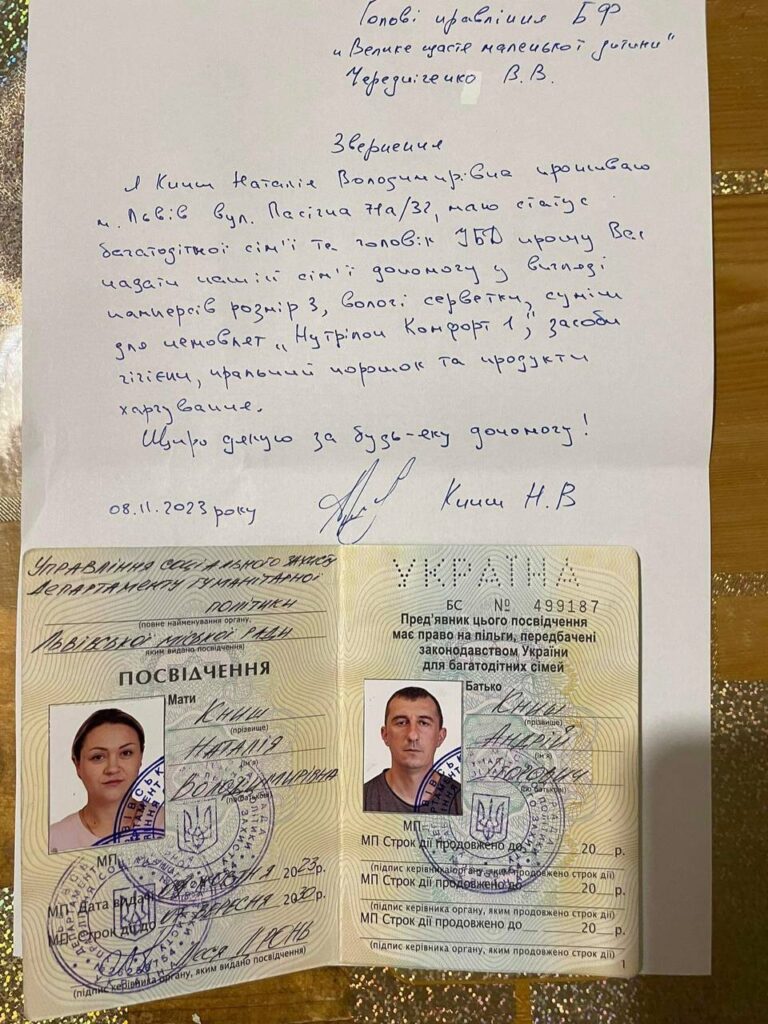 Голові правління БФ
„Велике щастя маленької дитини"
Чередніченко В.В.
Звернення
Я Книш Наталія Володимирівна проживаю
м. Львів вул. Пасічна 71а/32, маю статус
багатодітної сім'ї та чоловік УБД прошу Вас
надати нашій сім'ї допомогу у вигляді
памперсів розмір 3, вологі серветки, суміш
для немовлят „Нутрілон Комфорт 1", засоби
гігієни, пральний порошок та продукти
харчування.
Щиро дякую за будь-яку допомогу!
08.11.2023 року Книш Н.В
Управління соціального захисту
Департаменту гуманітарної
політики
(повне найменування органу,
Львівської міської ради
яким видано посвідчення)
ПОСВІДЧЕННЯ
Мати
Книш
(прізвище)
Наталія
(ім'я)
Володимирівна
(по батькові)
МП
МП Дата видачі жовтня 2023р.
МП Строк дії до вересня 2030р.
Леся
(підпис керівника органу, яким видано посвідчення)
УКРАЇНА
БС № 499187
Пред'явник цього посвідчення
має право на пільги, передбачені
законодавством України
для багатодітних сімей
Батько
Книш
(прізвище)
Андрій
(ім'я)
(по батькові)
МП
МП Строк дії продовжено до 20 р.
(підпис керівника органу, яким продовжено строк дії)
МП Строк дії продовжено до 20 р.
(підпис керівника органу, яким продовжено строк дії)
МП Строк дії продовжено до 20 р.
(підпис керівника органу, яким продовжено строк дії)
1